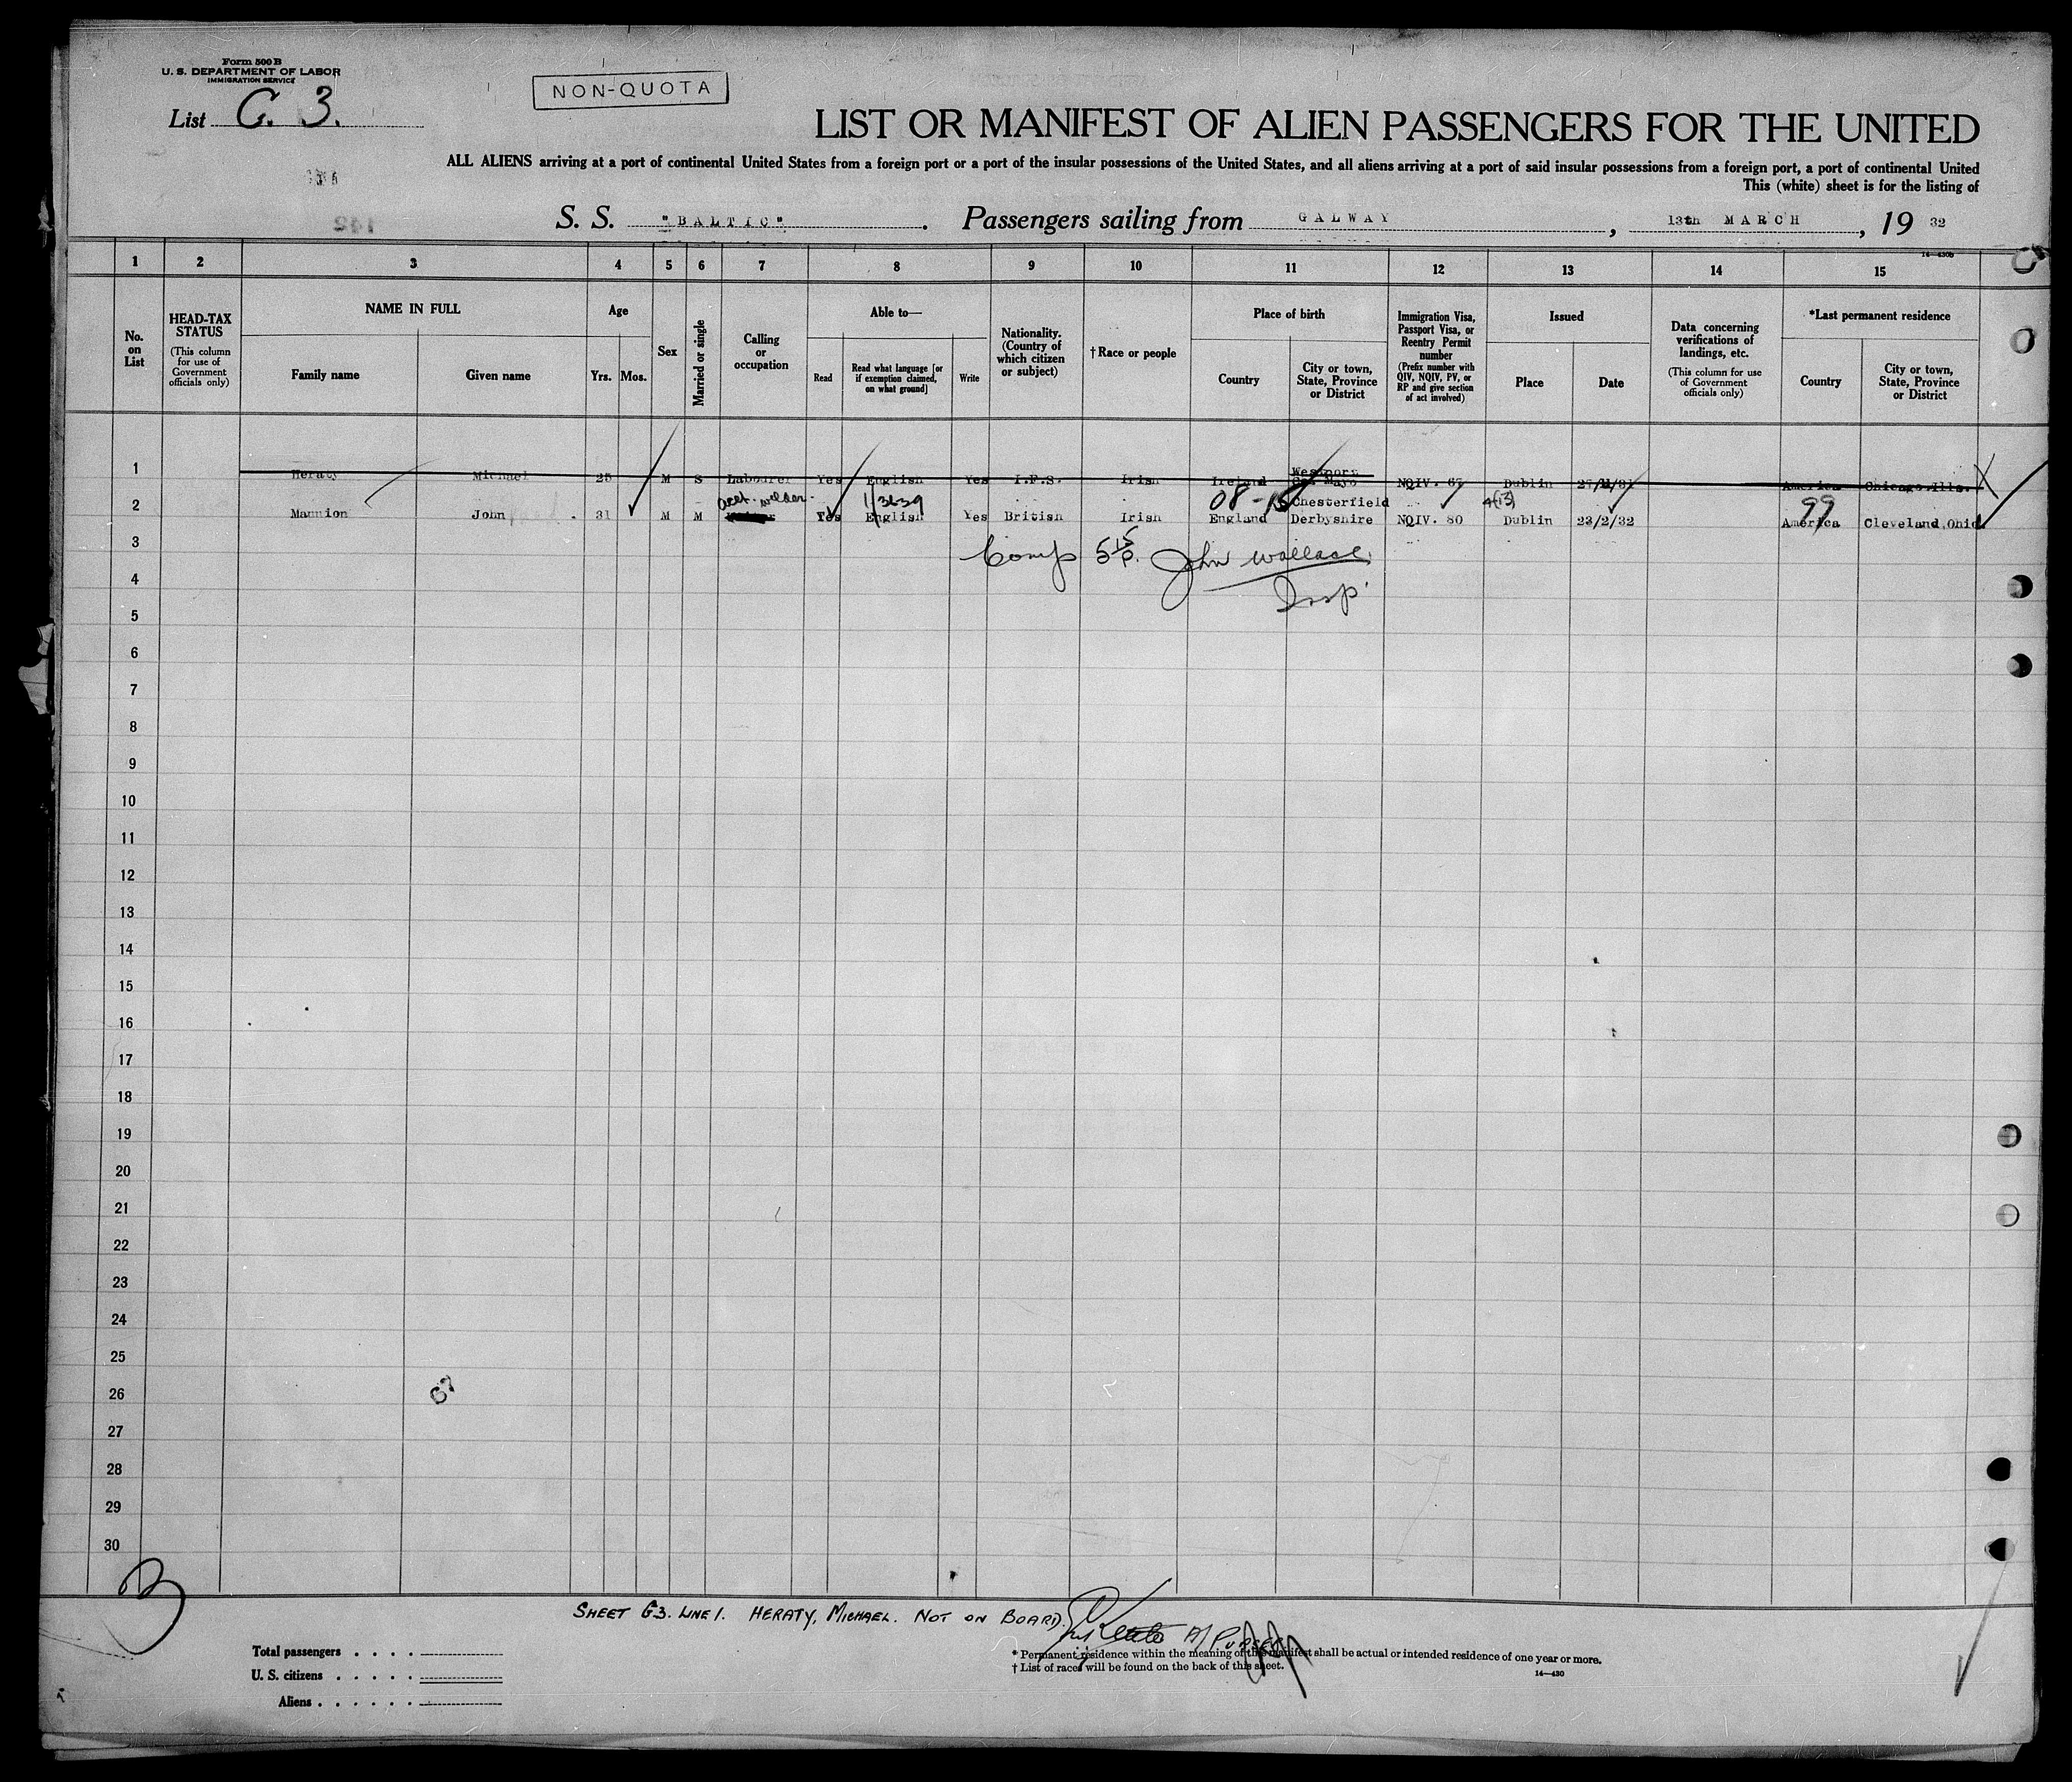 Form 500 B
U. S. DEPARTMENT OF LABOR
IMMIGRATION SERVICE
NON-QUOTA
List G. 3.
LIST OR MANIFEST OF ALIEN PASSENGERS FOR THE UNITED
ALL ALIENS arriving at a port of continental United States from a foreign port or a port of the insular possessions of the United States, and all aliens arriving at a port of said insular possessions from a foreign port, a port of continental United
This (white) sheet is for the listing of
142
S. S. "BALTIC". Passengers sailing from GALWAY, 13th MARCH, 19 32
14—430b
1 2 3 4 5 6 7 8 9 10 11 12 13 14 15
No. on List
HEAD-TAX STATUS (This column for use of Government officials only)
NAME IN FULL
Family name Given name
Age
Yrs. Mos.
Sex
Married or single
Calling or occupation
Able to—
Read Read what language [or if exemption claimed, on what ground] Write
Nationality. (Country of which citizen or subject)
† Race or people
Place of birth
Country City or town, State, Province or District
Immigration Visa, Passport Visa, or Reentry Permit number (Prefix number with QIV, NQIV, PV, or RP and give section of act involved)
Issued
Place Date
Data concerning verifications of landings, etc. (This column for use of Government officials only)
*Last permanent residence
Country City or town, State, Province or District
Westport
1 Heraty Michael 25 M S Labourer Yes English Yes I.F.S. Irish Ireland Co. Mayo NQIV. 67 Dublin America Chicago.Ills.
acet. welder. 1/3639 08- Chesterfield 4(13) 99
2 Mannion John 31 M M Yes English Yes British Irish England Derbyshire NQIV. 80 Dublin 23/2/32 America Cleveland,Ohio
3 Comp 5 15 P. John Wallace
4 Insp
5
6
7
8
9
10
11
12
13
14
15
16
17
18
19
20
21
22
23
24
25
26
27
28
29
30
SHEET G3. LINE 1. HERATY, MICHAEL. NOT ON BOARD.
A/PURSER
Total passengers
U. S. citizens
Aliens
* Permanent residence within the meaning of this manifest shall be actual or intended residence of one year or more.
† List of races will be found on the back of this sheet.
14—430